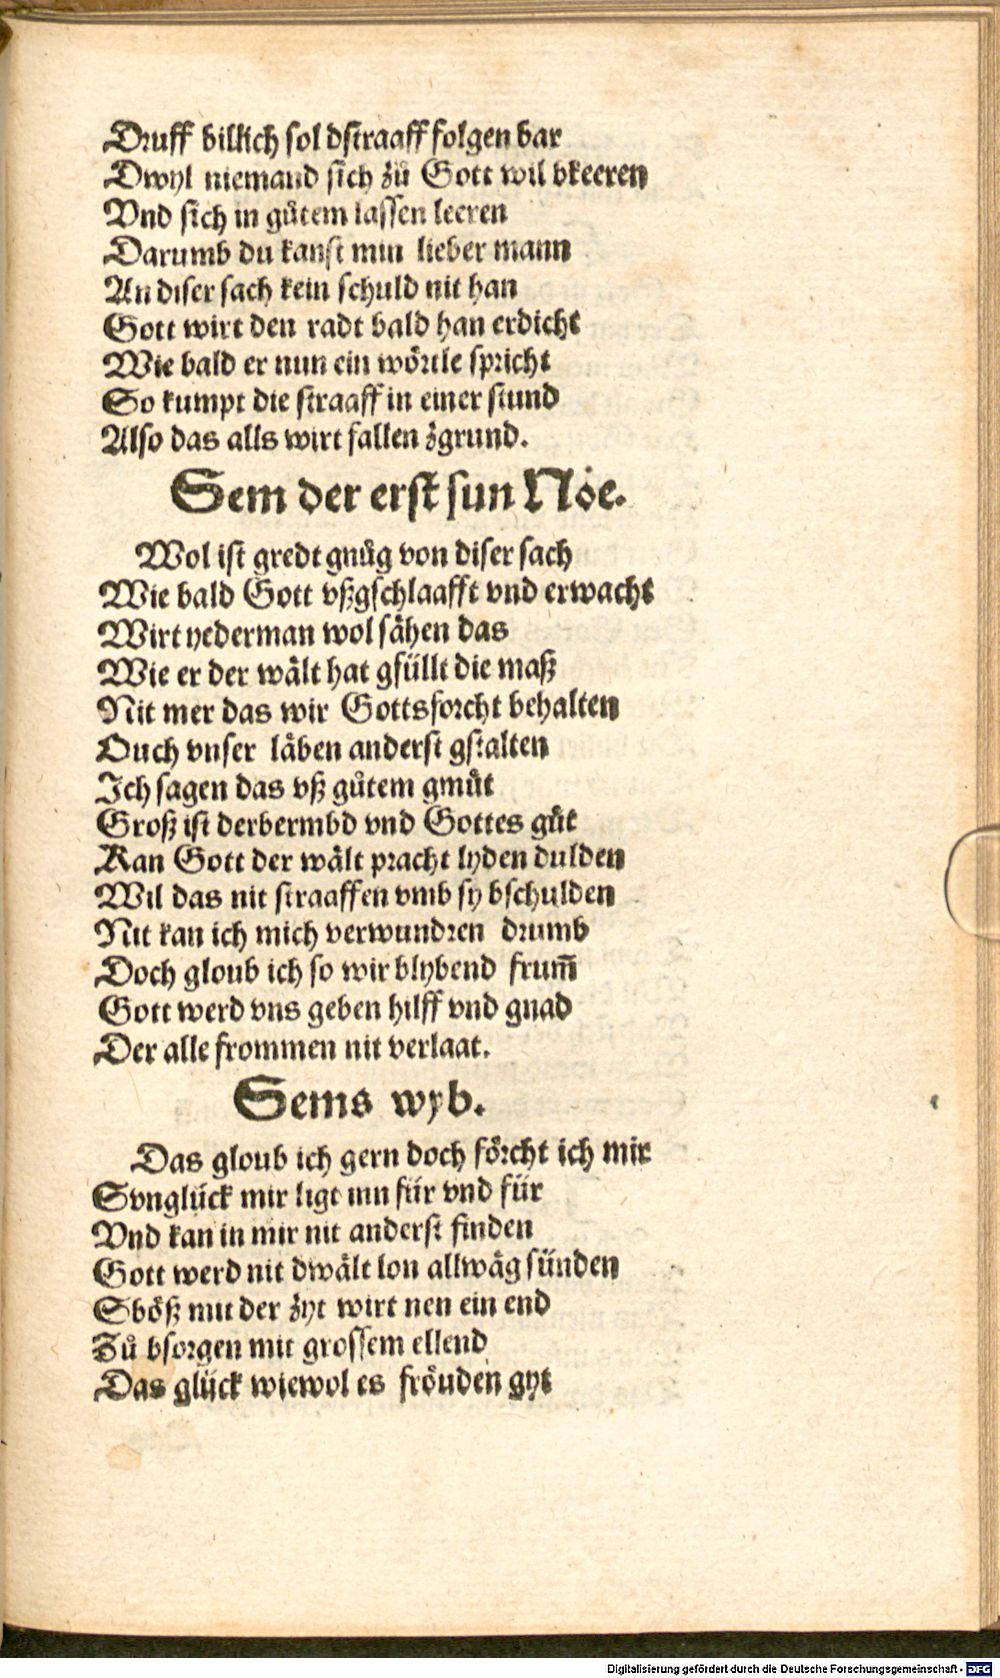 Druff billich sol dstraaff folgen bar
Dwyl niemand sich zů Gott wil bkeeren
Vnd sich in gůtem lassen leeren
Darumb du kanst min lieber mann
An diser sach kein schuld nit han
Gott wirt den radt bald han erdicht
Wie bald er nun ein wörtle spricht
So kumpt die straaff in einer stund
Also das alls wirt fallen zgrund.
Sem der erst sun Noe.
Wol ist gredt gnůg von diser sach
Wie bald Gott vßgschlaafft vnd erwacht
Wirt yederman wol sähen das
Wie er der wält hat gfüllt die maß
Nit mer das wir Gottsforcht behalten
Ouch vnser läben anderst gstalten
Ich sagen das vß gůtem gmůt
Groß ist derbermbd vnd Gottes gůt
Kan Gott der wält pracht lyden dulden
Wil das nit straaffen vmb sy bschulden
Nit kan ich mich verwundren drumb
Doch gloub ich so wir blybend frum̄
Gott werd vns geben hilff vnd gnad
Der alle frommen nit verlaat.
Sems wyb.
Das gloub ich gern doch förcht ich mir
Svnglück mir ligt inn für vnd für
Vnd kan in mir nit anderst finden
Gott werd nit dwält lon allwäg sünden
Sböß mit der zyt wirt nen ein end
Zů bsorgen mit grossem ellend
Das glück wiewol es fröuden gyt
Digitalisierung gefördert durch die Deutsche Forschungsgemeinschaft - DFG